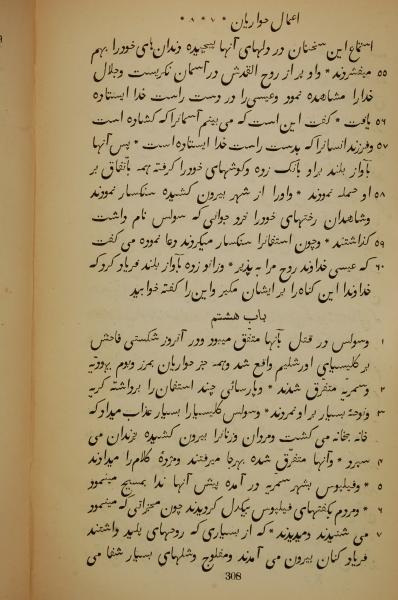 اعمال حواریان * ۷ * ۸ *
استماع این سخنان در دلهای آنها پیچیده دندان‌های خودرا بهم
۵۵ میفشردند * واو پر از روح القدس در آسمان نکریست وجلال
خدارا مشاهده نمود وعیسی‌را در دست راست خدا ایستاده
۵۶ یافت * کفت این است که می‌بینم آسمانرا که کشاده است
۵۷ وفرزند انسانرا که بدست راست خدا ایستاده است * پس آنها
بآواز بلند براو بانک زده وکوشهای خودرا کرفته همه باتّفاق بر
۵۸ او حمله نمودند * واورا از شهر بیرون کشیده سنکسار نمودند
وشاهدان رختهای خودرا نزد جوانی که سولس نام داشت
۵۹ کذاشتند * وچون استفانرا سنکسار میکردند دعا نموده می کفت
۶۰ که عیسی خداوند روح مرا به پذیر * وزانو زده بآواز بلند فریاد کرد که
خداوندا این کناه‌را بر ایشان مکیر واین‌را کفته خوابید
باب هشتم
۱ وسولس در قتل بآنها متفق میبود ودر آنروز شکستی فاحش
بر کلیسیای اورشلیم واقع شد وهمه جز حواریان بمرز وبوم یهودیّه
۲ وسمریّه متفرق شدند * وپارسائی چند استفان‌را برداشته کریه
۳ ونوحهٔ بسیار بر او نمردند * وسولس کلیسیارا بسیار عذاب میداد که
خانه بخانه می کشت ومردان وزنانرا بیرون کشیده بزندان می
۴ سپرد * وآنها متفرّق شده بهرجا میرفتند ومژدهٔ کلام‌را میدادند
۵ * وفیلپوس بشهر سمریه در آمده پیش آنها ندا بمسیح مینمود
۶ * ومردم بکفتهای فیلپوس یکدل کردیدند چون معجزاتی که مینمود
۷ می شنیدند ومیدیدند * که از بسیاری که روحهای پلید داشتند
فریاد کنان بیرون می آمدند ومفلوج وشلهای بسیار شفا می
308